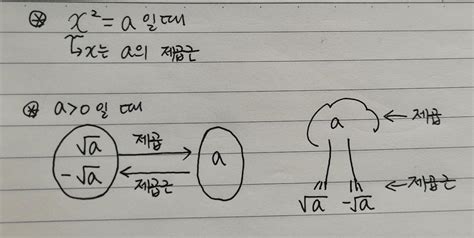 ⊛ x² = a 일 때
↳ x는 a의 제곱근
⊛ a>0 일 때
√a 제곱 a
-√a 제곱근
a ← 제곱
√a -√a ← 제곱근